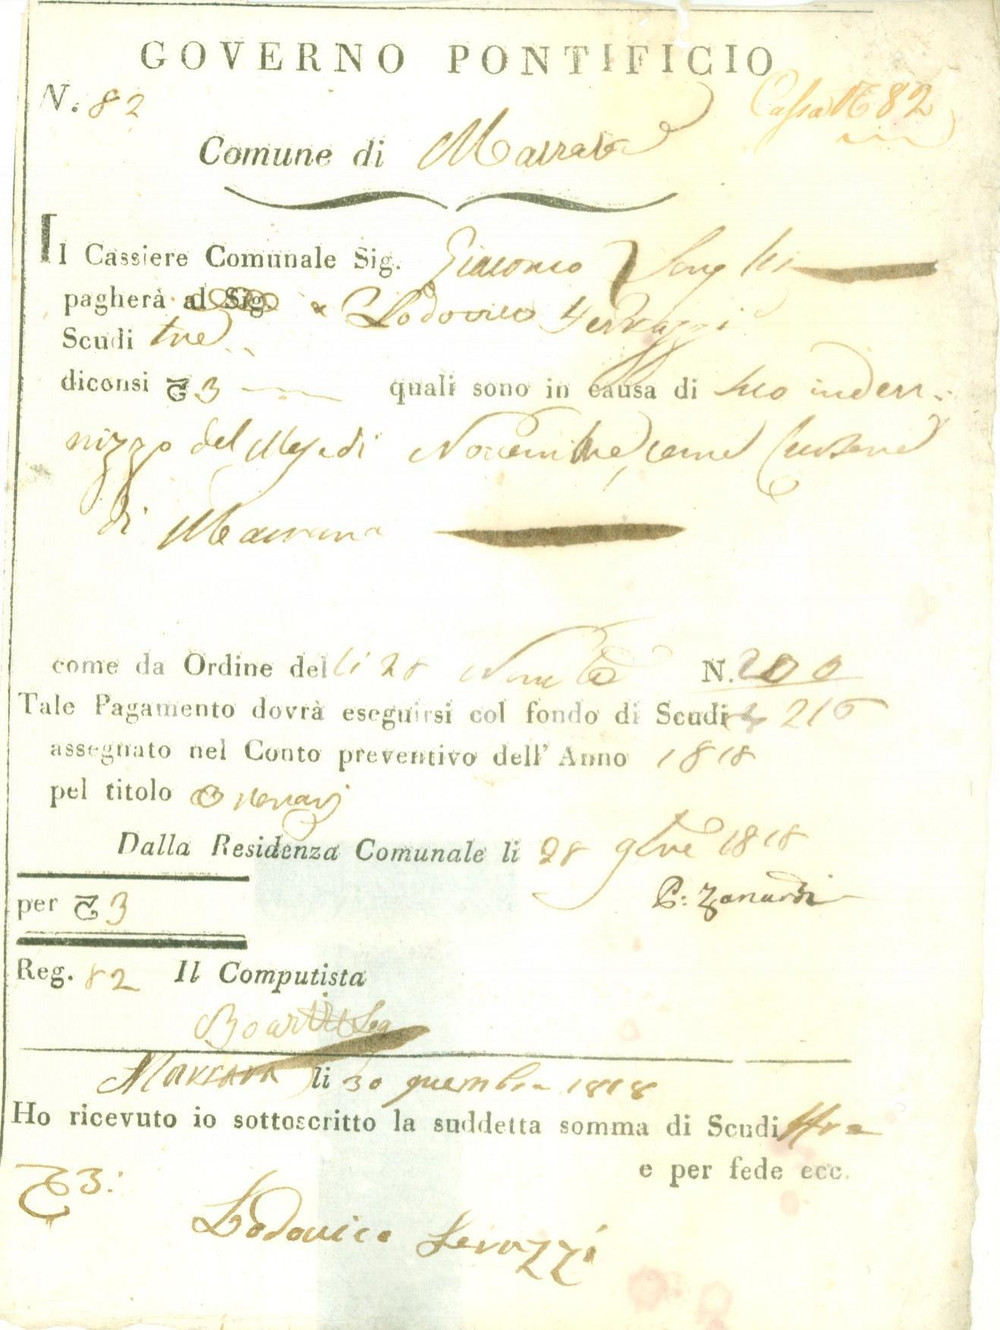 GOVERNO PONTIFICIO
N. 82
Cassa N 82
Comune di
Il Cassiere Comunale Sig. Giacomo
pagherà al Sig. a Lodovico
Scudi tre
diconsi 3 quali sono in causa di suo inden-
nizzo del Mese di Novembre, come Cursore
di
come da Ordine del li 28 N. 200
Tale Pagamento dovrà eseguirsi col fondo di Scudi 216
assegnato nel Conto preventivo dell' Anno 1818
pel titolo Onorarj
Dalla Residenza Comunale li 28 9bre 1818
P: Zanardi
per 3
Reg. 82 Il Computista
li 30 1818
Ho ricevuto io sottoscritto la suddetta somma di Scudi tre
e per fede ecc.
3:
Lodovico